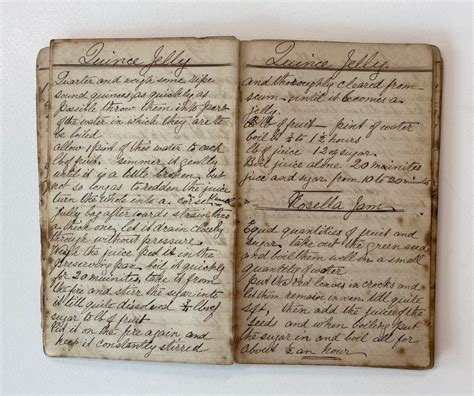 Quince Jelly
Quarter and weigh some ripe
sound quinces as quickly as
possible throw them into part
of the water in which they are to
be boiled
allow 1 pint of this water to each
lb of fruit. simmer it gently
until it is a little broken but
not so long as to redden the juice
turn the whole into a
jelly bag afterwards strain thro
a thick one, let it drain closely
through without pressure.
Weigh the juice put it in the
preserving pan boil it quickly
for 20 muinites, take it from
the fire and stirr the sugar into
it till quite dissolved lbs of
sugar to lb of fruit
Put it on the fire again and
keep it constantly stirred
Quince Jelly.
and thoroughly cleared from
scum, until it becomes a
jelly
lb of fruit - pint of water
boil to 1½ hours
lb juice 12 oz sugar.
Boil juice alone 20 muinites
juice and sugar from 10 to 20 muinites
Rosella Jam
Equil quantities of fruit and
sugar, take out the green seed
and boil them well in a small
quantity of water
put the red leaves in crocks and
let them remain in oven till quite
soft, then add the juice of the
seeds and when boiling put
the sugar in and boil all for
about ½ an hour